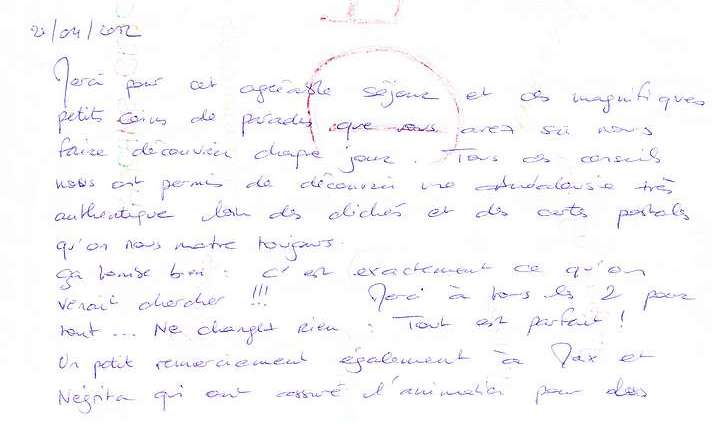 22/04/2012
Merci pour cet agréable séjour et ces magnifiques
petits coins de paradis que vous avez su nous
faire découvrir chaque jour. Tous ces conseils
nous ont permis de découvrir une Andalousie très
authentique loin des clichés et des cartes postales
qu'on nous montre toujours.
ça tombe bien : c'est exactement ce qu'on
venait chercher !!! Merci à tous les 2 pour
tout ... Ne changez rien : Tout est parfait !
Un petit remerciement également à Max et
Négrita qui ont assuré l'animation pour des